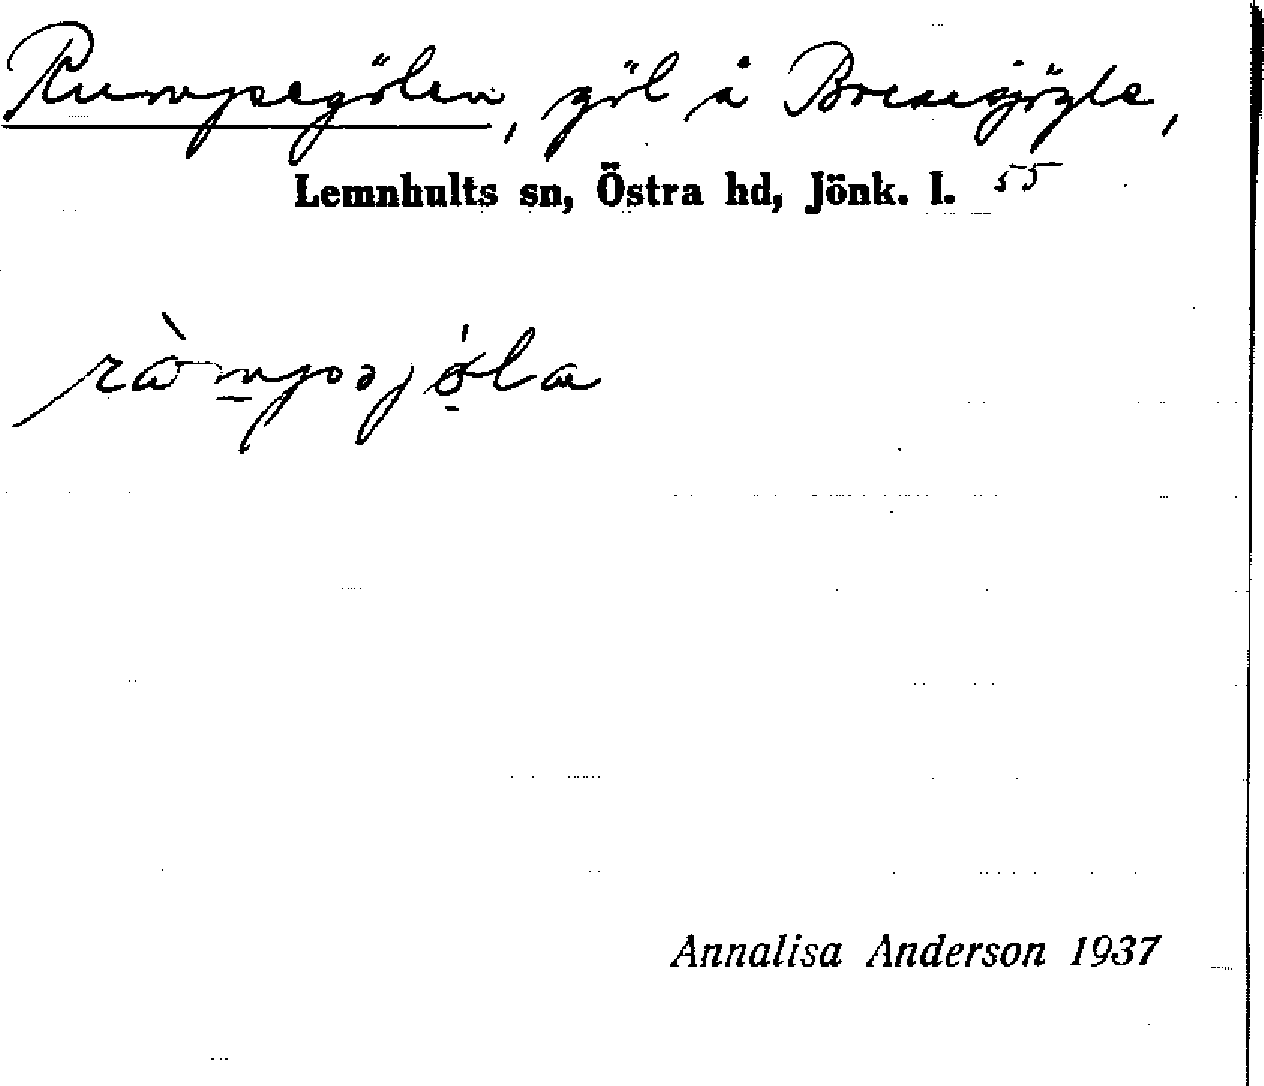 Rumpegölen, göl å Bresesjögle,
Lemnhults sn, Östra hd, Jönk. l. 55
Annalisa Anderson 1937